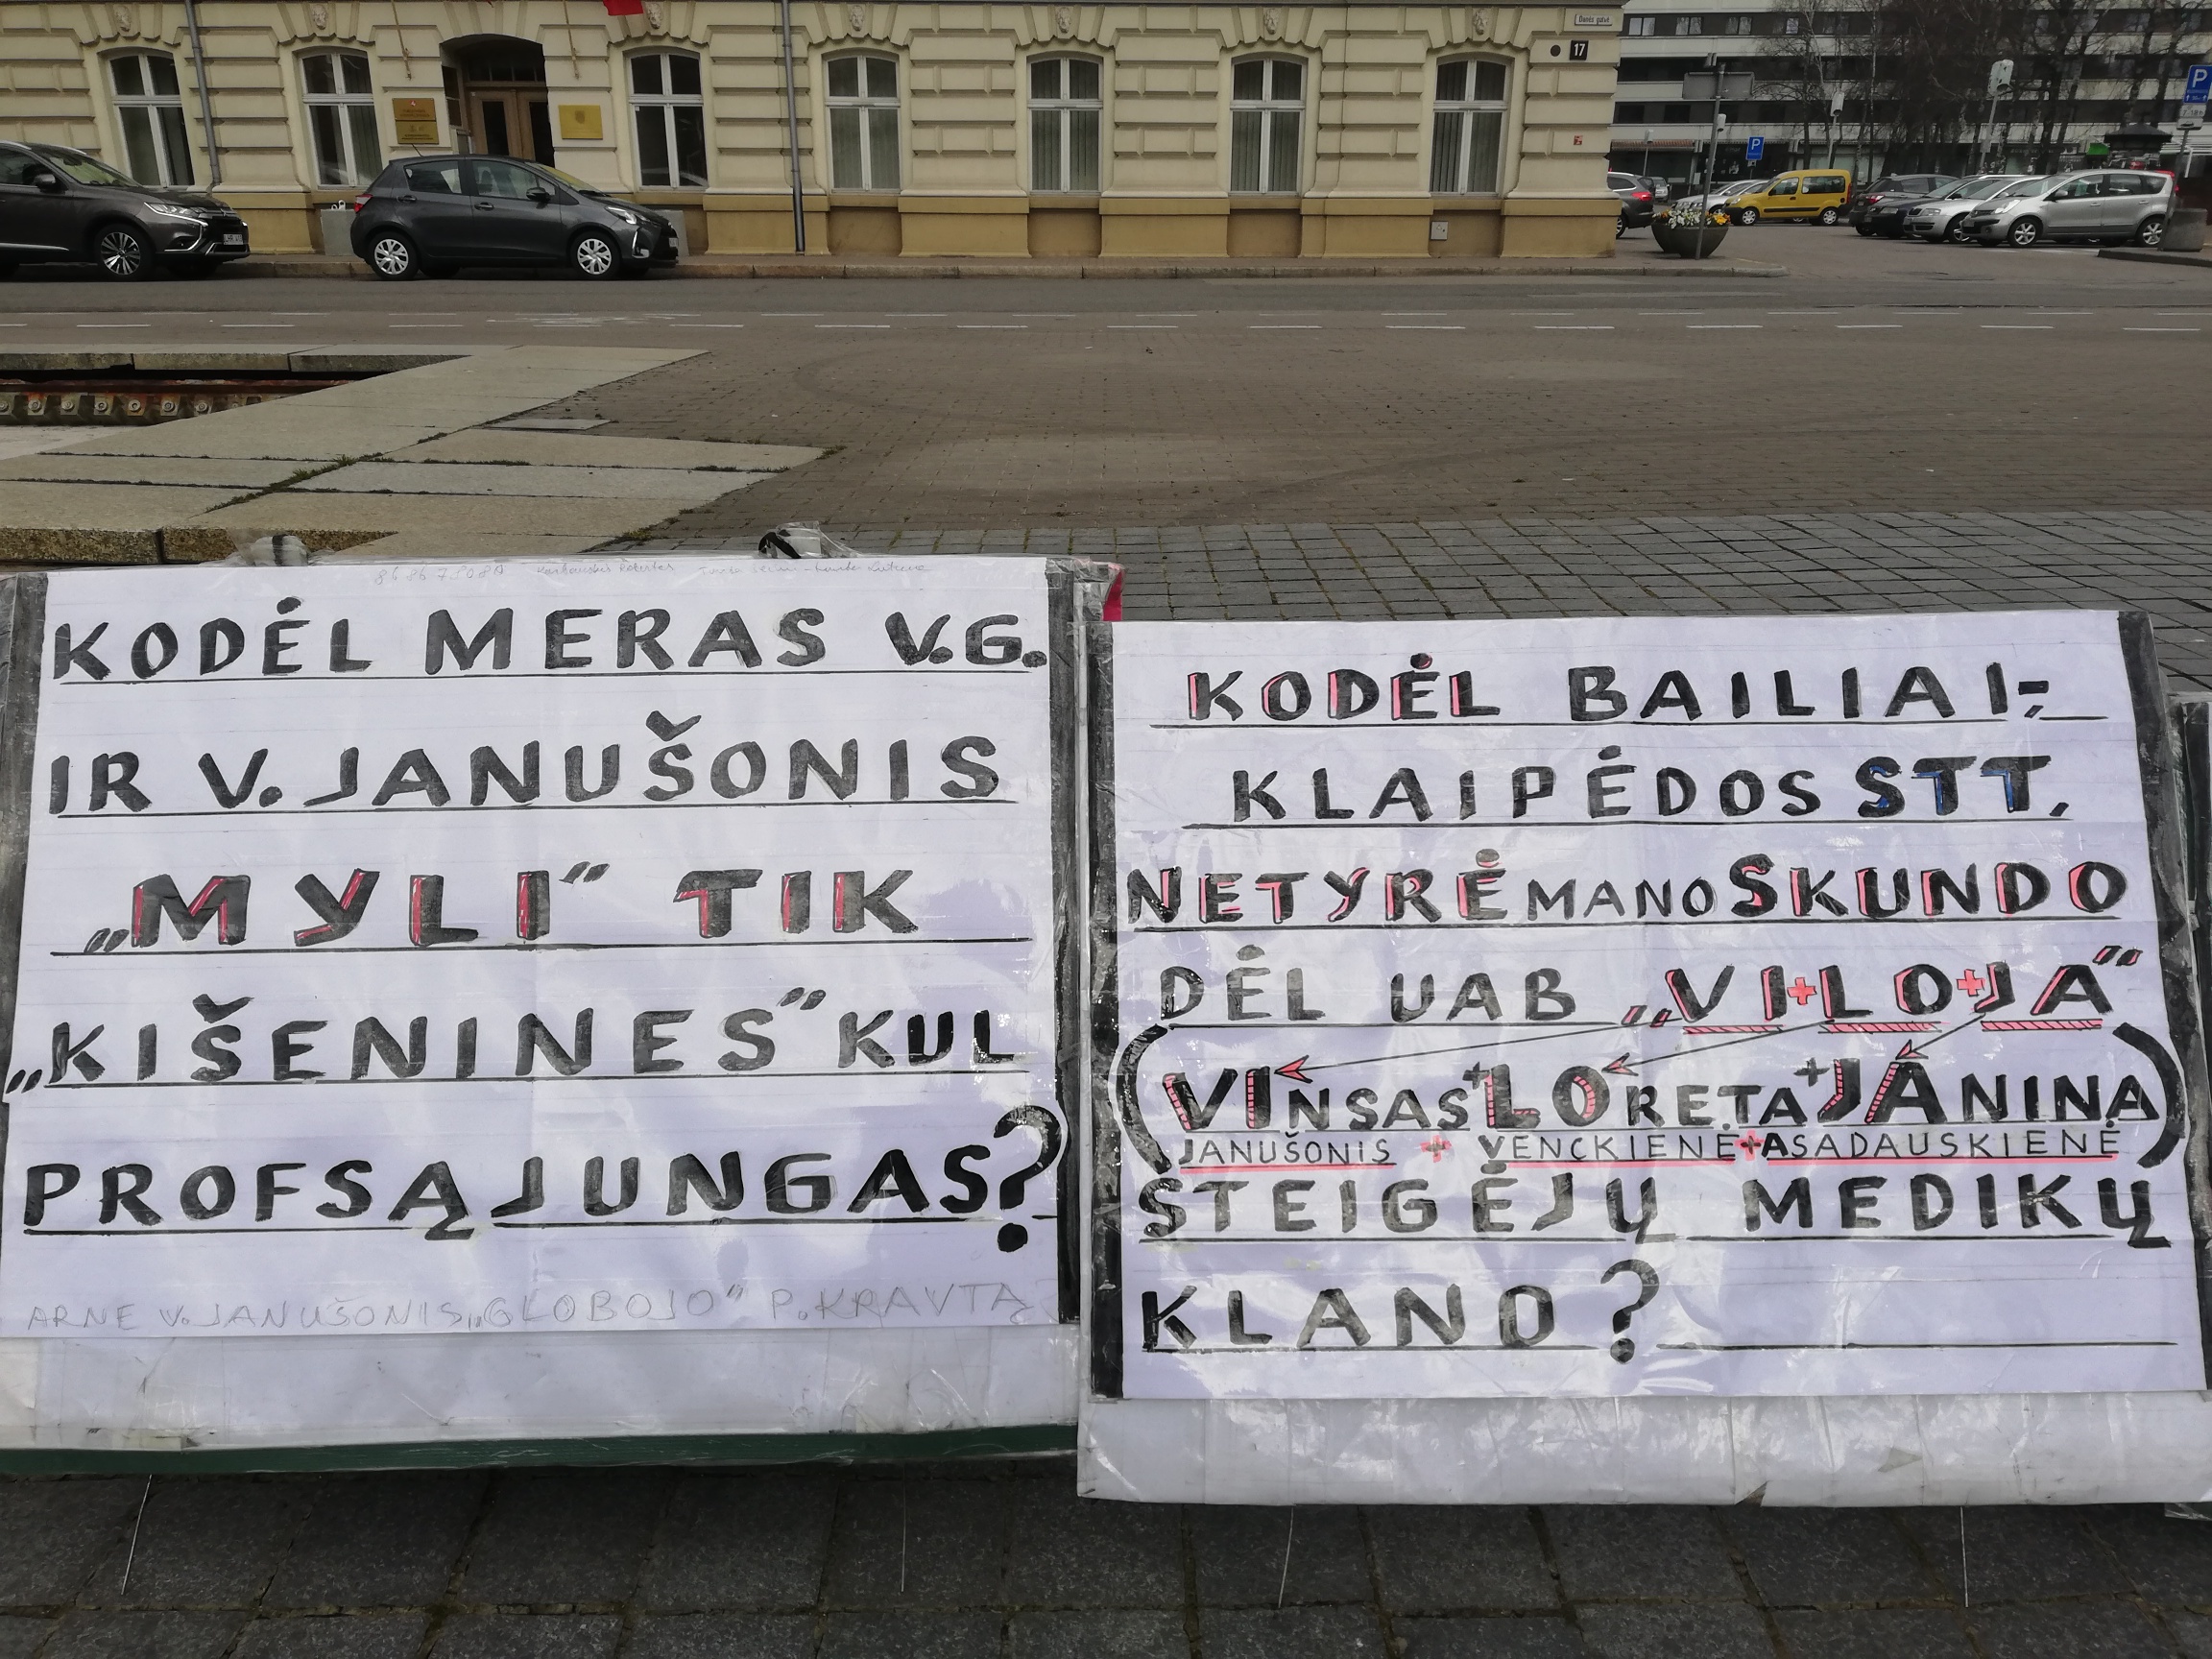 Danės gatvė
17
P
P
KODĖL MERAS V.G.
IR V. JANUŠONIS
„MYLI“ TIK
„KIŠENINES“ KUL
PROFSĄJUNGAS?
ARNE V. JANUŠONIS „GLOBOJO“ P. KRAVTĄ
KODĖL BAILIAI;
KLAIPĖDOS STT.
NETYRĖ MANO SKUNDO
DĖL UAB „VI+LO+JA“
(VINSAS+LORETA+JANINA)
JANUŠONIS + VENCKIENĖ + ASADAUSKIENĖ
STEIGĖJŲ MEDIKŲ
KLANO?